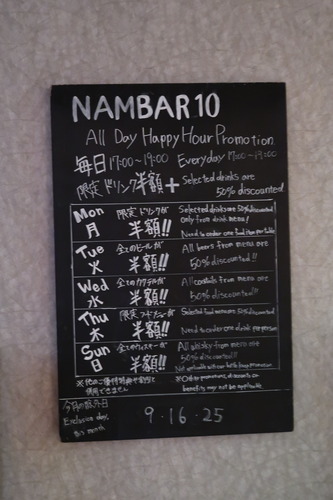 NAMBAR 10
All Day Happy Hour Promotion
毎日 17:00~19:00 Everyday 17:00~19:00
限定ドリンク半額+ Selected drinks are
50% discounted
Mon 限定ドリンクが Selected drinks are 50% discounted
月 半額!! Only from drink menu!
Need to order one food item per table
Tue 全てのビールが All beers from menu are
火 半額!! 50% discounted!!!
Wed 全てのカクテルが All cocktails from menu are
水 半額!! 50% discounted!!!
Thu 限定フードメニューが Selected food menu are 50% discounted
木 半額!! Need to order one drink per person
Sun 全てのウィスキーが All whisky from menu are
日 半額!! 50% discounted!!
Not applicable with our
※他のご優待特典や割引と ※Other promotions, discounts or
併用できません benefits may not be applicable
今月の
Exclusive day 9.16.25
this month